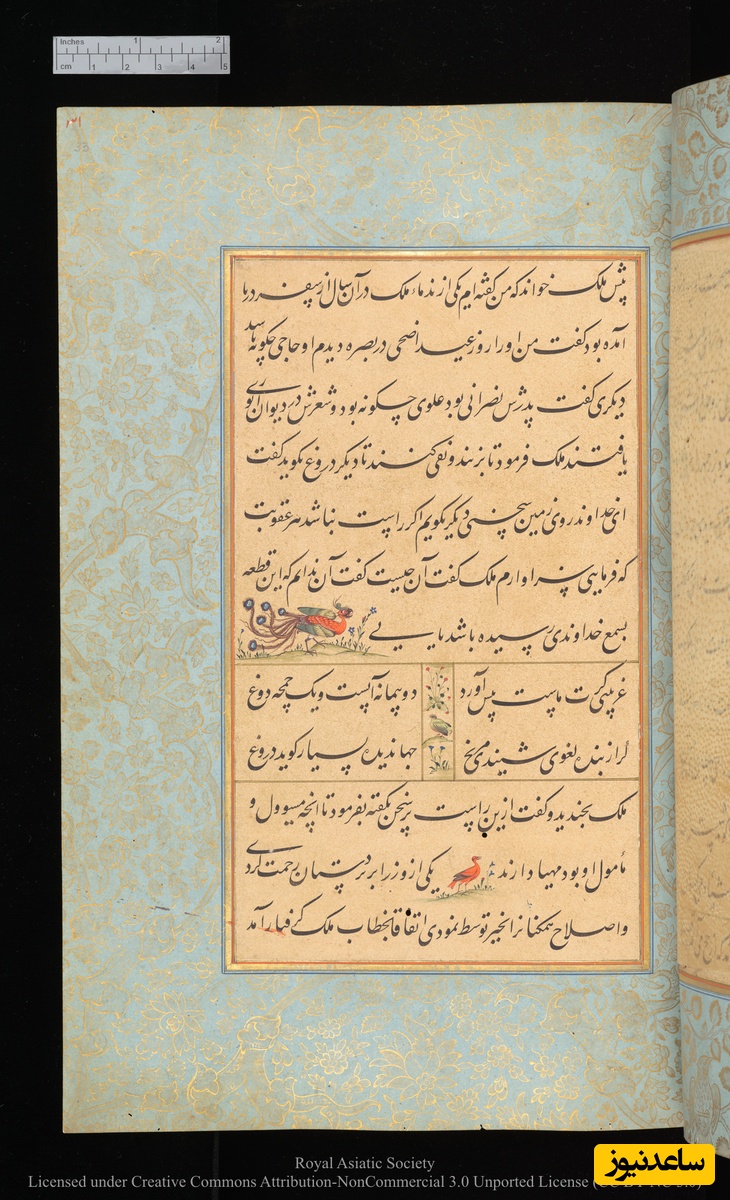 Inches 1 2
cm 1 2 3 4 5
۱۲۱
33
پیش ملک خواند که من گفته‌ام یکی از ندماء ملک در آن سال از سفر دریا
آمده بود گفت من او را روز عید اضحی در بصره دیدم او حاجی چگونه باشد
دیگری گفت پدرش نصرانی بود علوی چگونه بود و شعرش در دیوان انوری
یافتند ملک فرمود تا بزنند و نفی کنند تا دیگر دروغ نگوید گفت
ای خداوند روی زمین سخنی دیگر بگویم اگر راست نباشد هر عقوبت
که فرمایی سزاوارم ملک گفت آن چیست گفت آن ندانم که این قطعه
بسمع خداوندی رسیده باشد یا نی
غریبی گرت ماست پیش آورد دو پیمانه آبست و یک چمچه دوغ
گر از بنده لغوی شنیدی مرنج جهاندیده بسیار گوید دروغ
ملک بخندید و گفت ازین راست تر سخن نگفته بفرمود تا آنچه مسوول و
مأمول او بود مهیا دارند یکی از وزرا بر زیردستان رحمت کردی
و اصلاح همگنانرا بخیر توسط نمودی اتفاقا بخطاب ملک گرفتار آمد
Royal Asiatic Society
Licensed under Creative Commons Attribution-NonCommercial 3.0 Unported License
ساعدنیوز